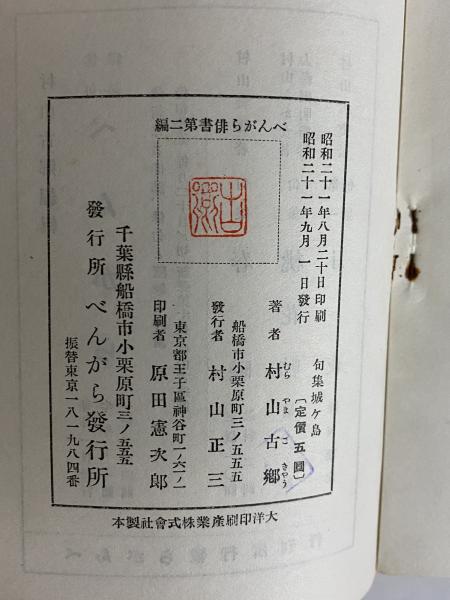 べんがら俳書第二編
昭和二十一年八月二十日印刷
昭和二十一年九月一日發行
句集城ケ島
〔定價五圓〕
著者 村山古鄕
むらやまこきやう
船橋市小栗原町三ノ五五五
發行者 村山正三
東京都王子區神谷町一ノ六一ノ二
印刷者 原田憲次郎
千葉縣船橋市小栗原町三ノ五五五
發行所 べんがら發行所
振替東京一八一九八四番
大洋印刷産業株式會社製本